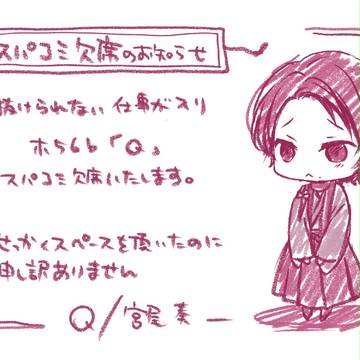 スパコミ欠席のお知らせ
抜けられない仕事が入り
ホ56b「Q」
スパコミ欠席いたします。
せっかくスペースを頂いたのに
申し訳ありません
Q/宮屋